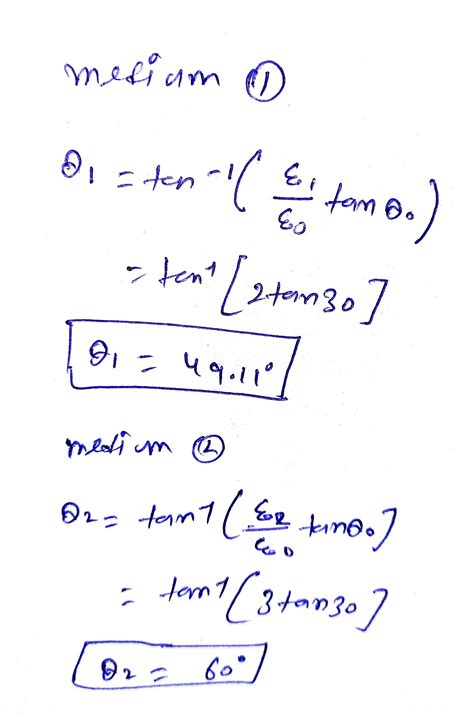 medium ①
θ₁ = tan⁻¹( ε₁/ε₀ tan θ₀ )
= tan⁻¹[ 2tan30 ]
θ₁ = 49.11°
medium ②
θ₂ = tan⁻¹( ε₂/ε₀ tanθ₀ ]
= tan⁻¹[ 3tan30 ]
θ₂ = 60°